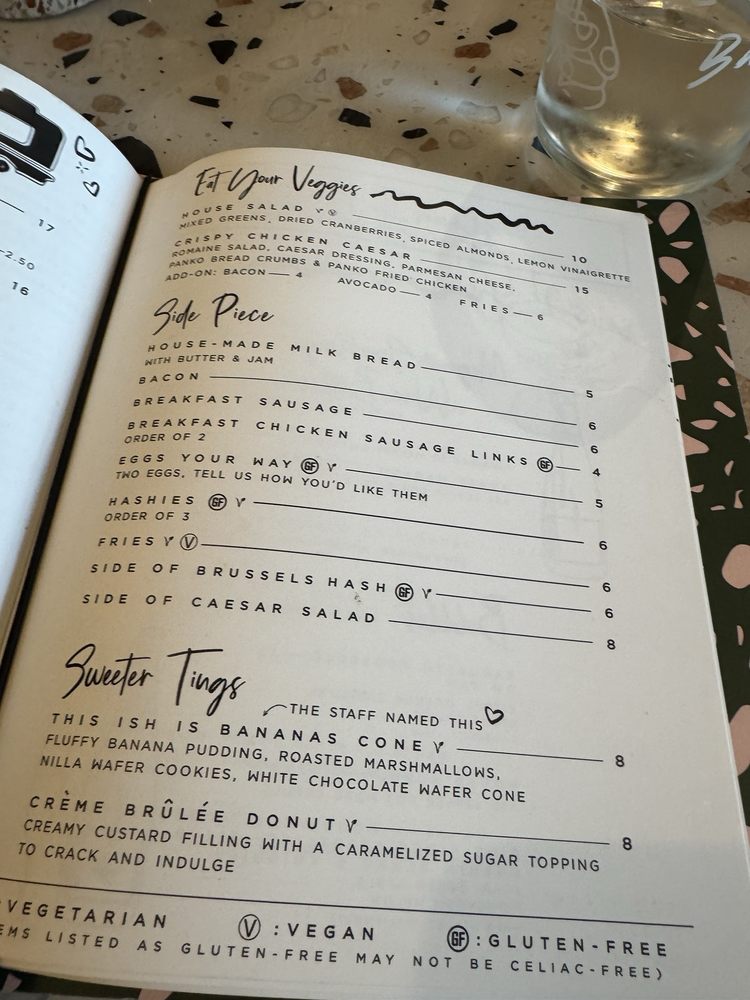 17
-2.50
16
Eat Your Veggies
HOUSE SALAD V 10
MIXED GREENS, DRIED CRANBERRIES, SPICED ALMONDS, LEMON VINAIGRETTE
CRISPY CHICKEN CAESAR 15
ROMAINE SALAD, CAESAR DRESSING, PARMESAN CHEESE,
PANKO BREAD CRUMBS & PANKO FRIED CHICKEN
ADD-ON: BACON 4 AVOCADO 4 FRIES 6
Side Piece
HOUSE-MADE MILK BREAD 5
WITH BUTTER & JAM
BACON 6
BREAKFAST SAUSAGE 6
BREAKFAST CHICKEN SAUSAGE LINKS GF 4
ORDER OF 2
EGGS YOUR WAY GF 5
TWO EGGS, TELL US HOW YOU'D LIKE THEM
HASHIES GF 6
ORDER OF 3
FRIES V 6
SIDE OF BRUSSELS HASH GF 6
SIDE OF CAESAR SALAD 8
Sweeter Tings
THE STAFF NAMED THIS
THIS ISH IS BANANAS CONE 8
FLUFFY BANANA PUDDING, ROASTED MARSHMALLOWS,
NILLA WAFER COOKIES, WHITE CHOCOLATE WAFER CONE
CRÈME BRÛLÉE DONUT 8
CREAMY CUSTARD FILLING WITH A CARAMELIZED SUGAR TOPPING
TO CRACK AND INDULGE
:VEGETARIAN V :VEGAN GF :GLUTEN-FREE
EMS LISTED AS GLUTEN-FREE MAY NOT BE CELIAC-FREE)